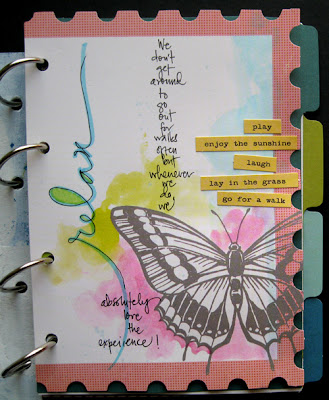 We
don't
get
around
to
go
out
for
walks
often
but
whenever
we
do, we
absolutely
love
the
experience!
relax
play
enjoy the sunshine
laugh
lay in the grass
go for a walk